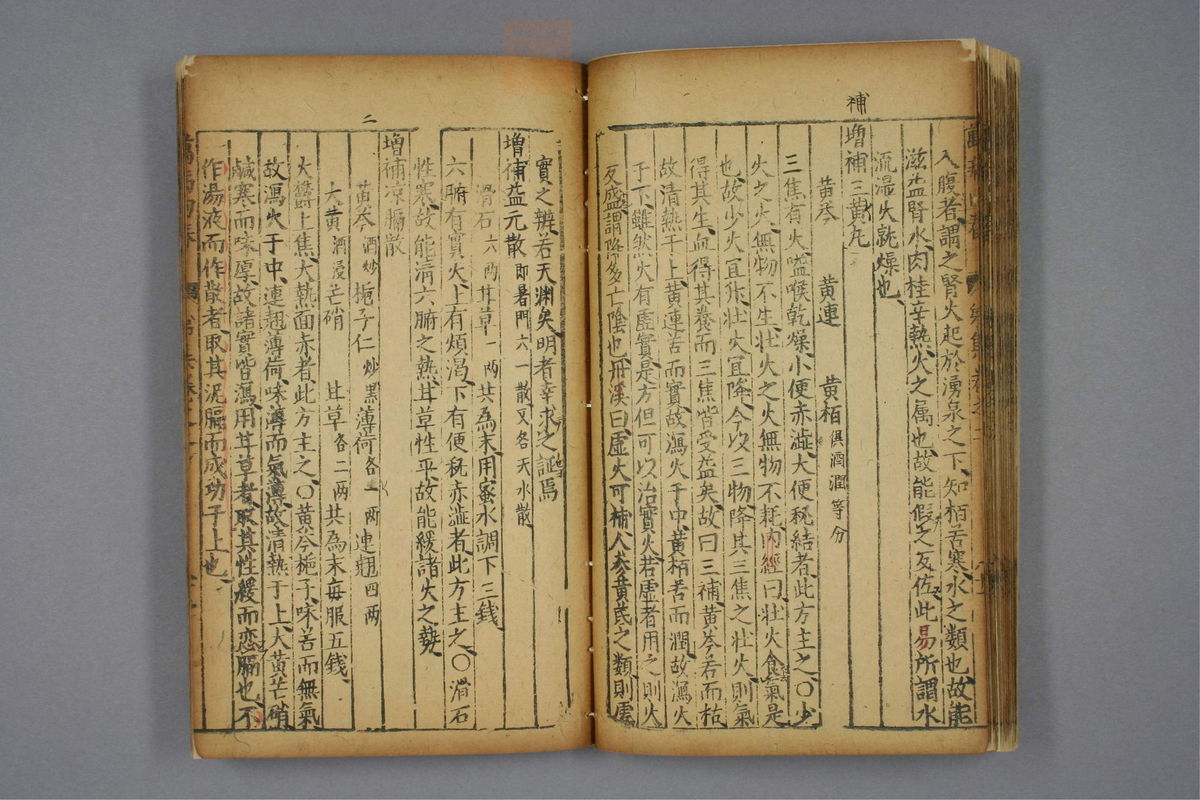 補
入腹者謂之腎火起於湧泉之下知栢苦寒水之類也故能
滋益腎水肉桂辛熱火之属也故能假之反佐此易所謂水
流濕火就燥也
增補三黃丸
黃芩 黃連 黃栢俱酒潤等分
三焦有火嗌喉乾燥小便赤澁大便秘結者此方主之○少
火之火無物不生壮火之火無物不耗内經曰壮火食氣是
也故少火宜升壮火宜降今以三物降其三焦之壮火則氣
得其生血得其養而三焦皆受益矣故曰三補黃芩苦而枯
故清熱于上黃連苦而實故瀉火于中黃栢苦而潤故瀉火
于下雖然火有虛實是方但可以治實火若虛者用之則火
反盛謂降多亡陰也丹溪曰虛火可補人參黃芪之類則虛
實之辨若天淵矣明者幸求之誣焉
增補益元散即暑門六一散又名天水散
滑石六兩甘草一兩共為末用蜜水調下三錢
六腑有實火上有煩渴下有便秘赤澁者此方主之○滑石
性寒故能清六腑之熱甘草性平故能緩諸火之勢
二
增補凉膈散
黃芩酒炒梔子仁炒黑薄荷各一兩連翹四兩
大黃酒浸芒硝 甘草各二兩共為末每服五錢
火欝上焦大熱面赤者此方主之○黃芩梔子味苦而無氣
故瀉火于中連翹薄荷味薄而氣薄故清熱于上大黃芒硝
鹹寒而味厚故諸實皆瀉用甘草者取其性緩而恋膈也不
作湯液而作散者取其泥膈而成功于上也